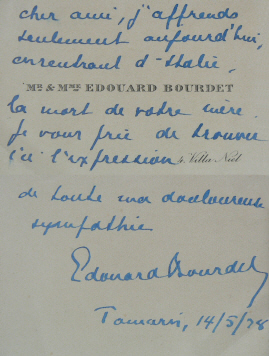 cher ami, j'apprends
seulement aujourd'hui,
en rentrant d'Italie,
Mr & Mme EDOUARD BOURDET
la mort de votre mère.
Je vous prie de trouver
ici l'expression
Villa Niel
de toute ma douloureuse
sympathie
Edouard Bourdet
Tamaris, 14/5/28